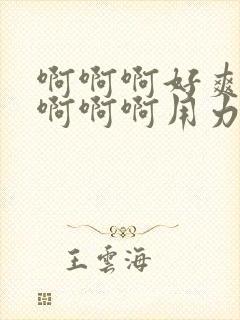 啊啊啊好爽
啊啊啊用力
王雲海